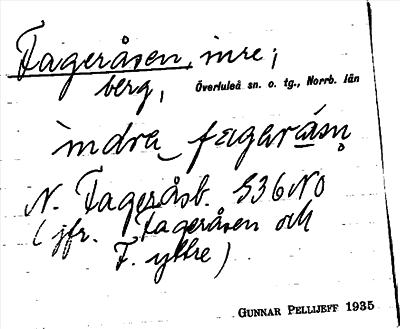 Fageråsen, inre;
berg,
Överluleå sn. o. tg., Norrb. län
ìndra_fagerásn̥
N. Fageråsb. S36NO
(jfr. Fageråsen och
F. yttre)
GUNNAR PELLIJEFF 1935